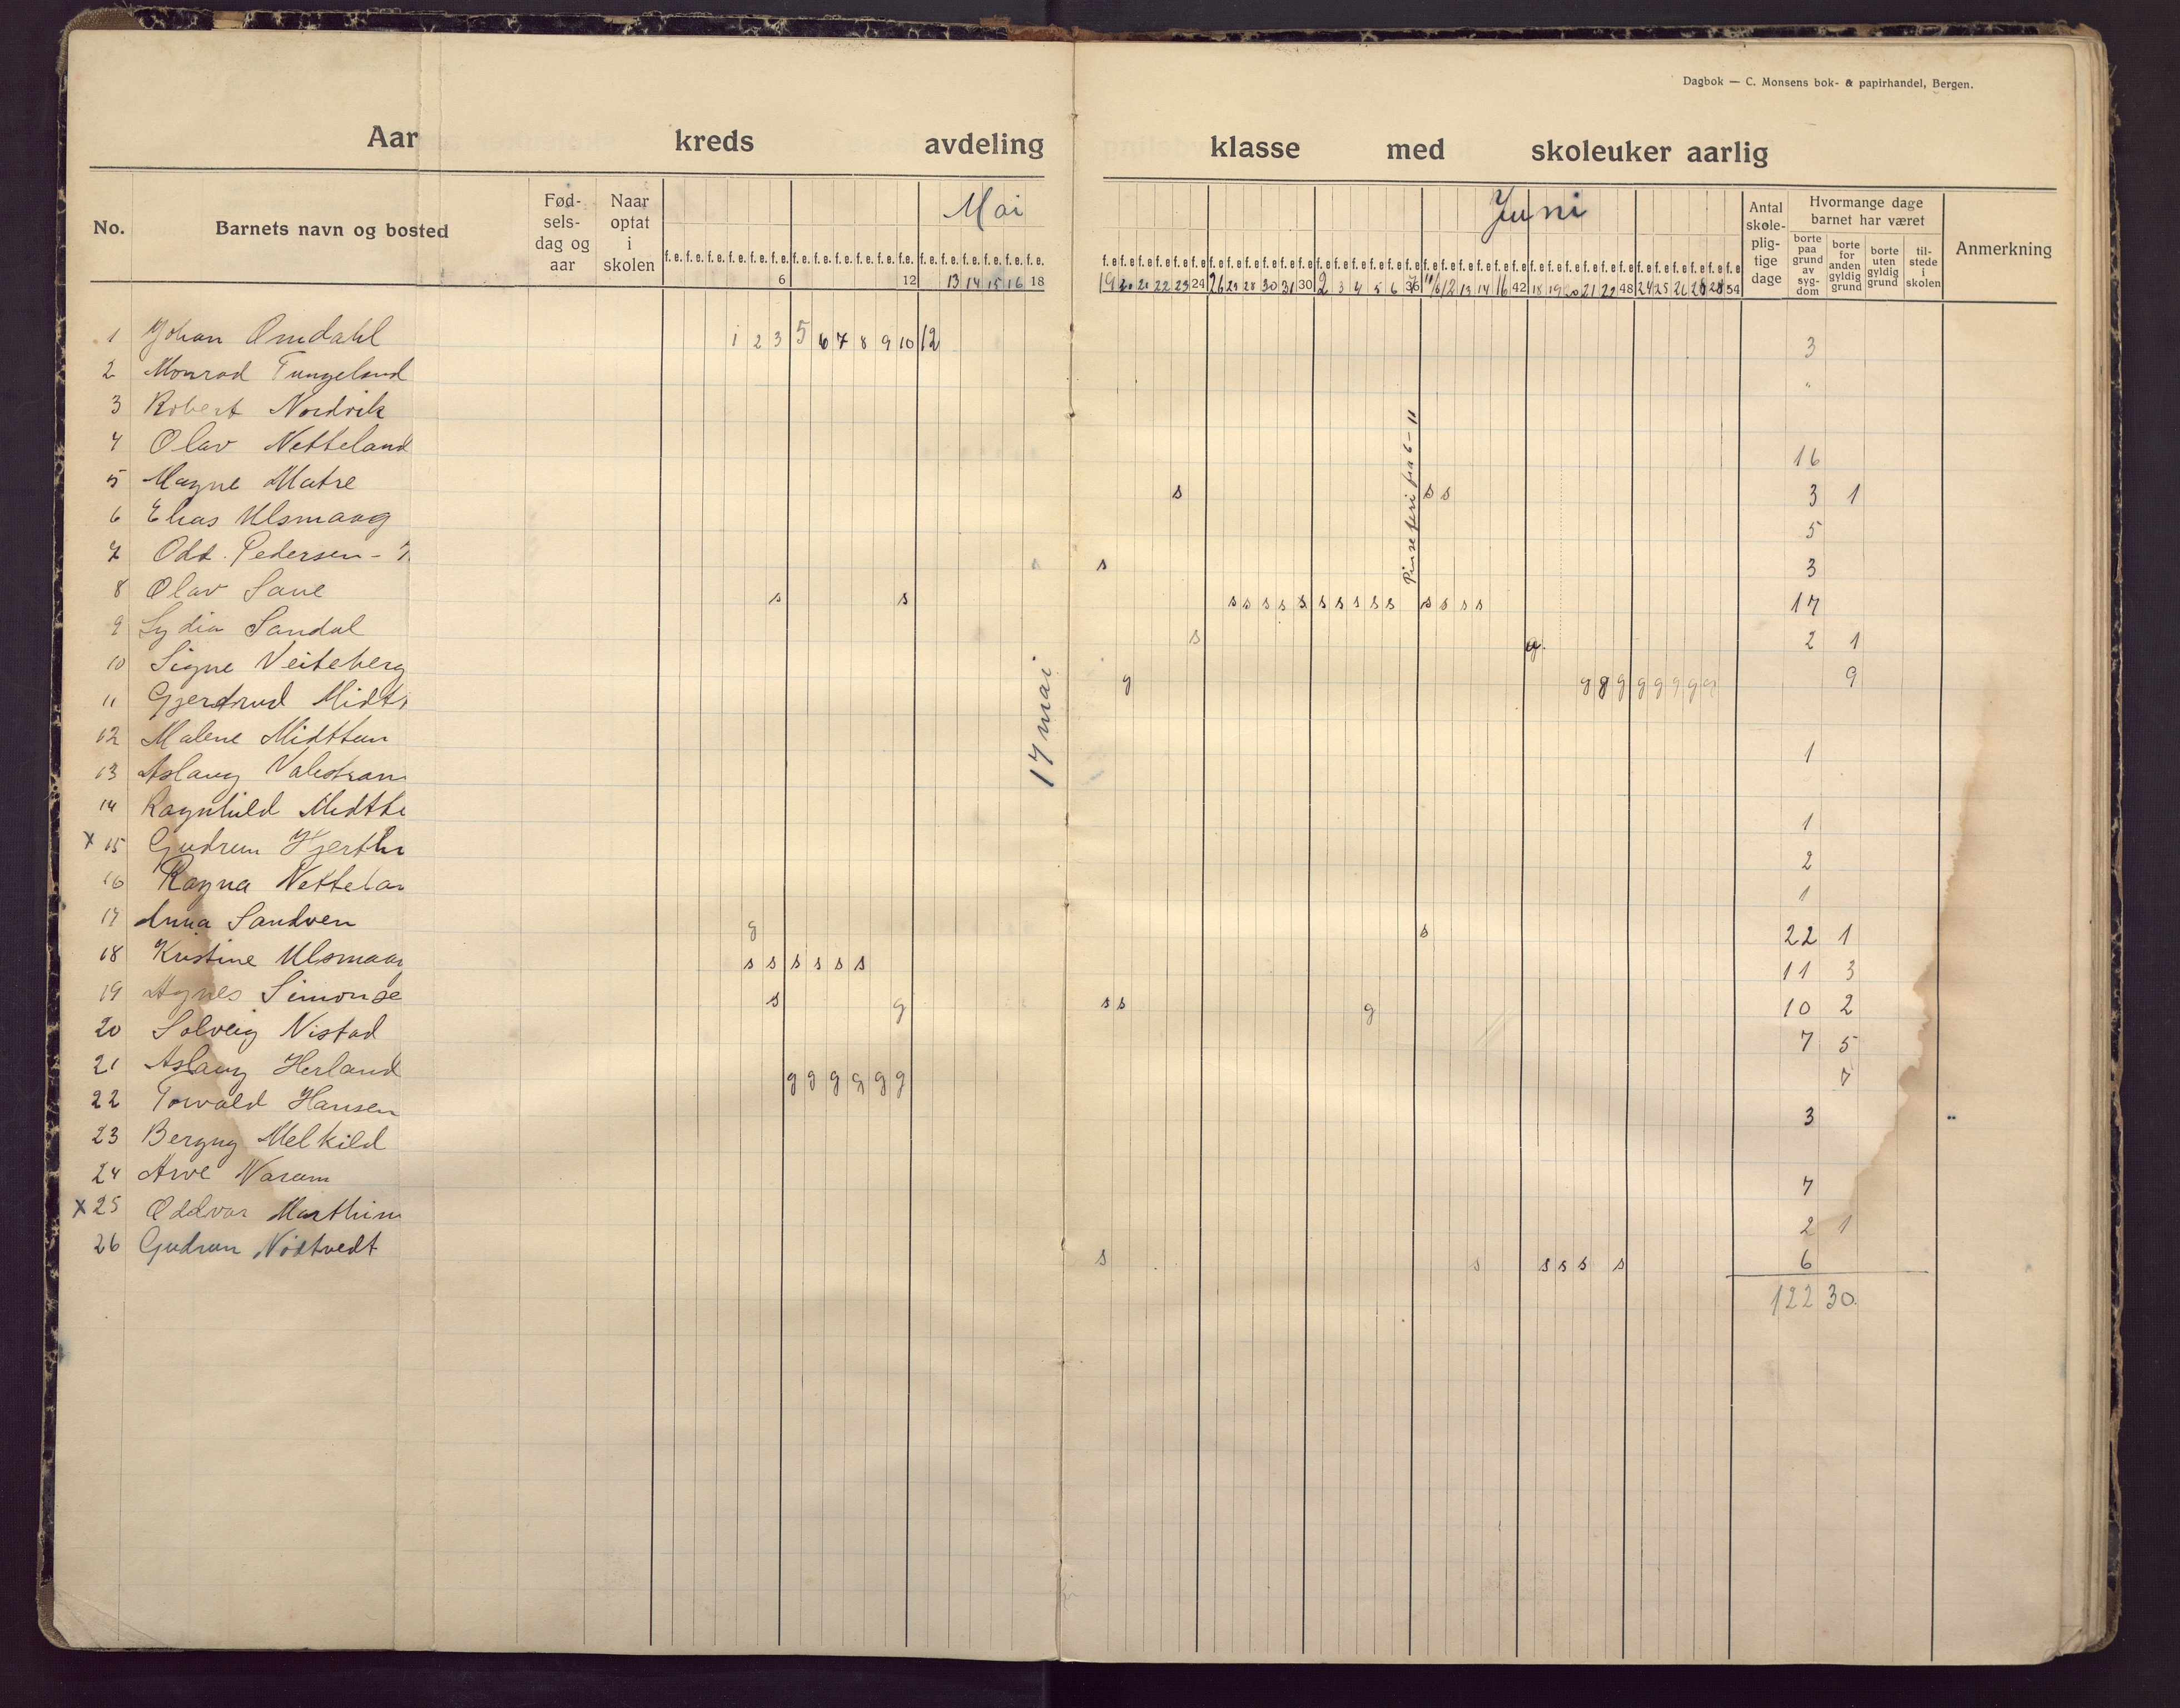 Dagbok — C. Monsens bok- & papirhandel, Bergen.
Aar kreds avdeling klasse med skoleuker aarlig
No. Barnets navn og bosted Fød-sels-dag og aar Naar optat i skolen Mai Juni Antal skole-plig-tige dage Hvormange dage barnet har været Anmerkning
borte paa grund av syg-dom borte for anden gyldig grund borte uten gyldig grund til-stede i skolen
6 12 13 14 15 16 18 19 20 21 22 23 24 26 27 28 30 31 30 2 3 4 5 6 36 11/6 12 13 14 16 42 18 19 20 21 22 48 24 25 26 28 54
1 Johan Omdahl 1 2 3 5 6 7 8 9 10 12 3
2 Monrad Tungeland "
3 Robert Nordvik
4 Olav Netteland 16
5 Magne Matre s s s 3 1
6 Elias Ulsmaag 5
7 Odd. Pedersen - s 3
8 Olav Saue s s s s s s s s s s s s s s s s 17
9 Lydia Sandal s g. 2 1
10 Signe Veiteberg g g g g g g g g g 9
11 Gjerdrud Midt
12 Malene Midttun 1
13 Aslaug Valestran
14 Ragnhild Midtt 1
x 15 Gudrun Hjerth 2
16 Ragna Nettelan 1
17 Anna Sandven g s 22 1
18 Kristine Ulsmaa s s s s s s 11 3
19 Agnes Simonse s g s s g 10 2
20 Solveig Nistad 7 5
21 Aslaug Herland g g g g g g 7
22 Torvald Hansen 3
23 Bergny Melkild
24 Arve Naram 7
x 25 Oddvar Marthin 2 1
26 Gudrun Nødtvedt s s s s s s 6
122 30.
17 mai
Pinseferi fra 6-11